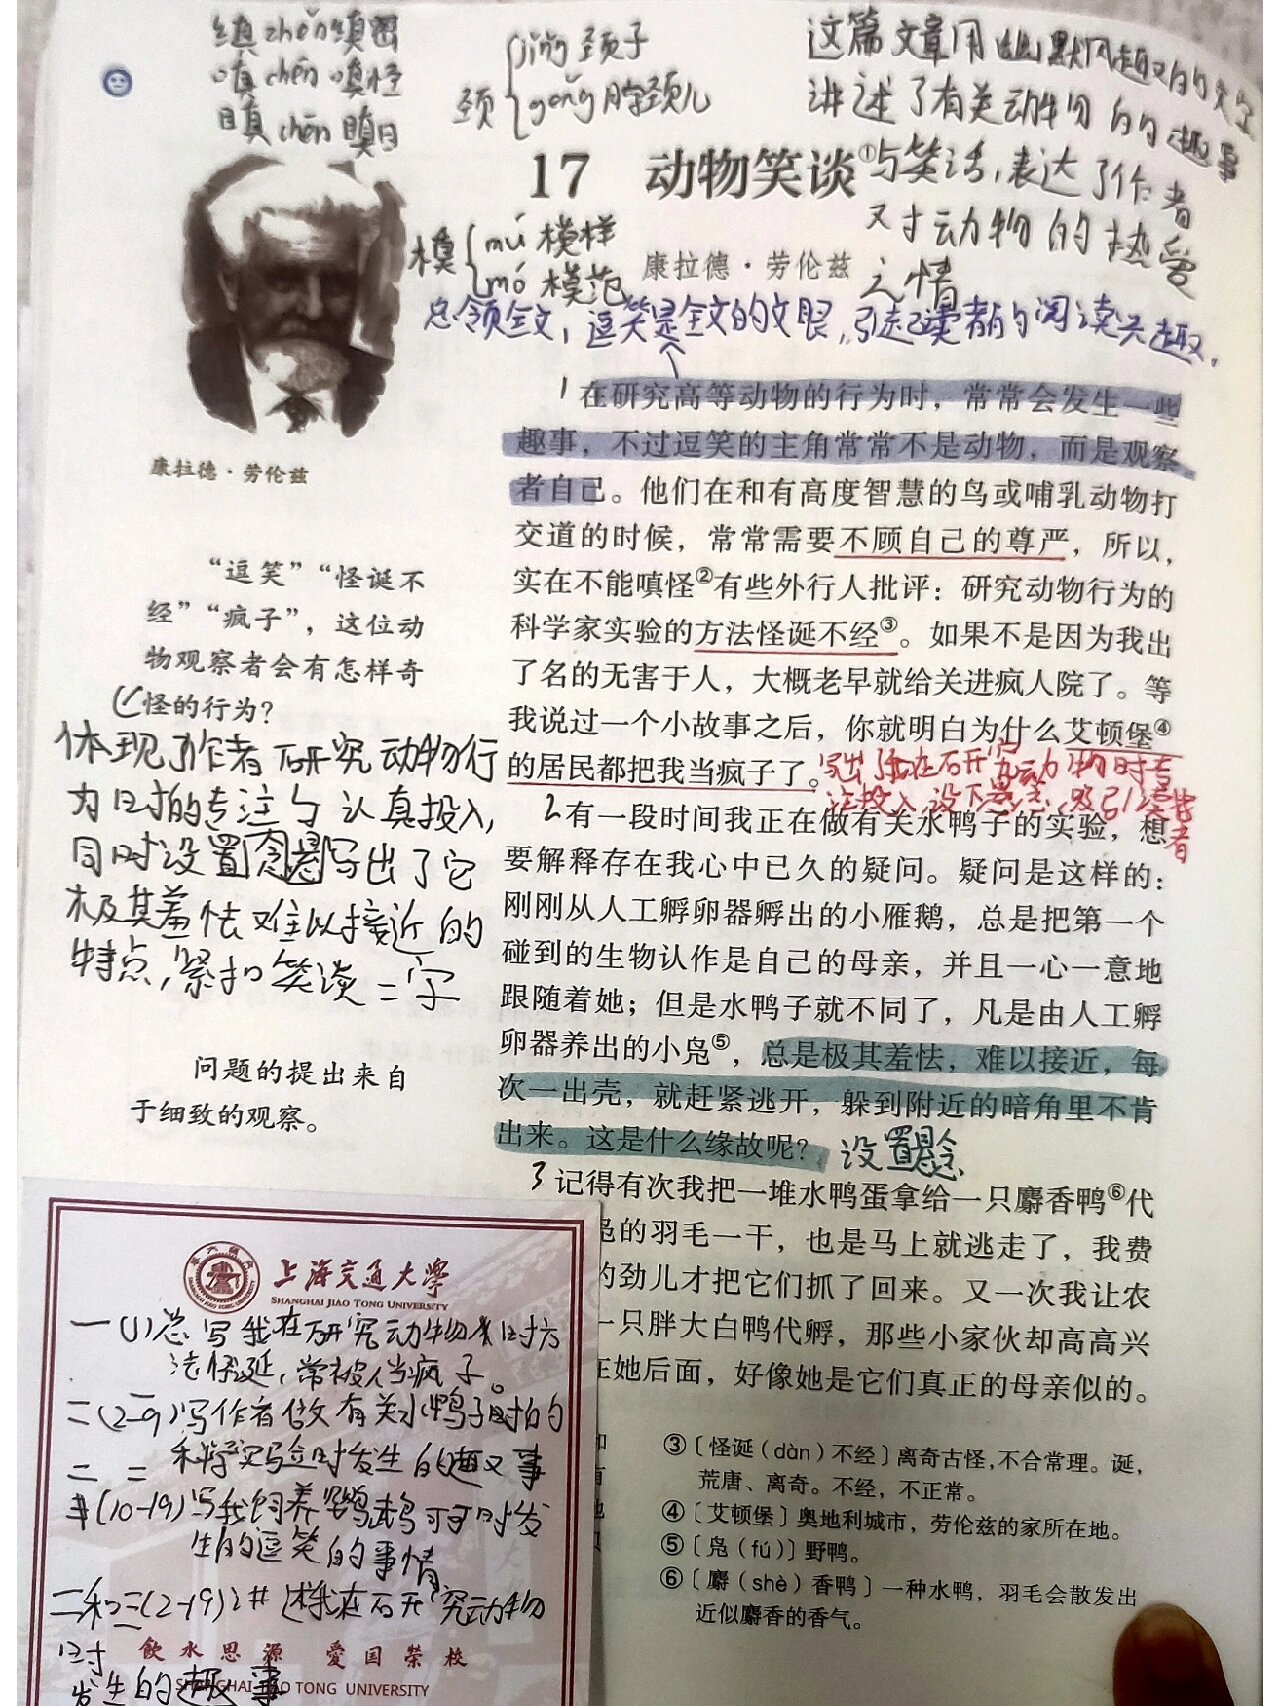 缜 zhěn 缜密
嗔 chēn 嗔怪
瞋 chēn 瞋目
颈 jǐng 颈子
gěng 脖颈儿
这篇文章用幽默风趣的文字
讲述了有关动物的趣事
与笑话,表达了作者
对动物的热爱
之情
17 动物笑谈①
模 mú 模样
mó 模范
康拉德·劳伦兹
总领全文,逗笑是全文的文眼,引起读者的阅读兴趣。
1 在研究高等动物的行为时,常常会发生一些
趣事,不过逗笑的主角常常不是动物,而是观察
者自己。他们在和有高度智慧的鸟或哺乳动物打
交道的时候,常常需要不顾自己的尊严,所以,
实在不能嗔怪②有些外行人批评:研究动物行为的
科学家实验的方法怪诞不经③。如果不是因为我出
了名的无害于人,大概老早就给关进疯人院了。等
我说过一个小故事之后,你就明白为什么艾顿堡④
的居民都把我当疯子了。
写出了他在研究动物时专
注投入,设下悬念,吸引读
者
康拉德·劳伦兹
“逗笑”“怪诞不
经”“疯子”,这位动
物观察者会有怎样奇
怪的行为?
体现了作者研究动物行
为时的专注与认真投入,
同时设置悬念写出了它
极其羞怯难以接近的
特点,紧扣笑谈二字
2 有一段时间我正在做有关水鸭子的实验,想
要解释存在我心中已久的疑问。疑问是这样的:
刚刚从人工孵卵器孵出的小雁鹅,总是把第一个
碰到的生物认作是自己的母亲,并且一心一意地
跟随着她;但是水鸭子就不同了,凡是由人工孵
卵器养出的小凫⑤,总是极其羞怯,难以接近,每
次一出壳,就赶紧逃开,躲到附近的暗角里不肯
出来。这是什么缘故呢?
设置悬念
问题的提出来自
于细致的观察。
3 记得有次我把一堆水鸭蛋拿给一只麝香鸭⑥代
凫的羽毛一干,也是马上就逃走了,我费
的劲儿才把它们抓了回来。又一次我让农
一只胖大白鸭代孵,那些小家伙却高高兴
在她后面,好像她是它们真正的母亲似的。
③〔怪诞(dàn)不经〕离奇古怪,不合常理。诞,
荒唐、离奇。不经,不正常。
④〔艾顿堡〕奥地利城市,劳伦兹的家所在地。
⑤〔凫(fú)〕野鸭。
⑥〔麝(shè)香鸭〕一种水鸭,羽毛会散发出
近似麝香的香气。
上海交通大学
SHANGHAI JIAO TONG UNIVERSITY
一(1)总写我在研究动物时方
法怪延,常被人当疯子。
二(2-9)写作者做有关水鸭子时的
科学实验时发生的趣事
(10-19)写我饲养鹦鹉可可时发
生的逗笑的事情
二和三(2-19)讲述我在研究动物
时
发生的趣事
飲水思源 愛国榮校
SHANGHAI JIAO TONG UNIVERSITY